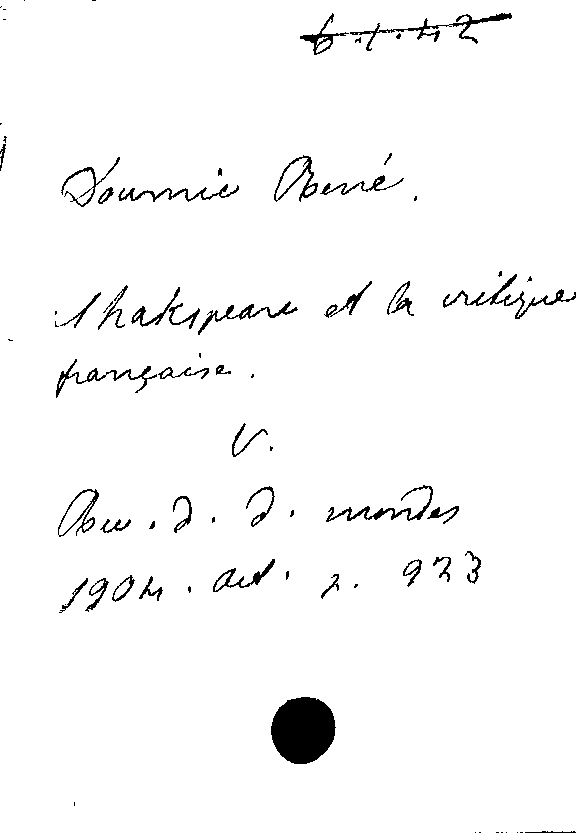 6.1.42
Doumic René.
Shakspeare et la critique
française.
V.
Rev. d. d. mondes
1904. oct. 2. 923